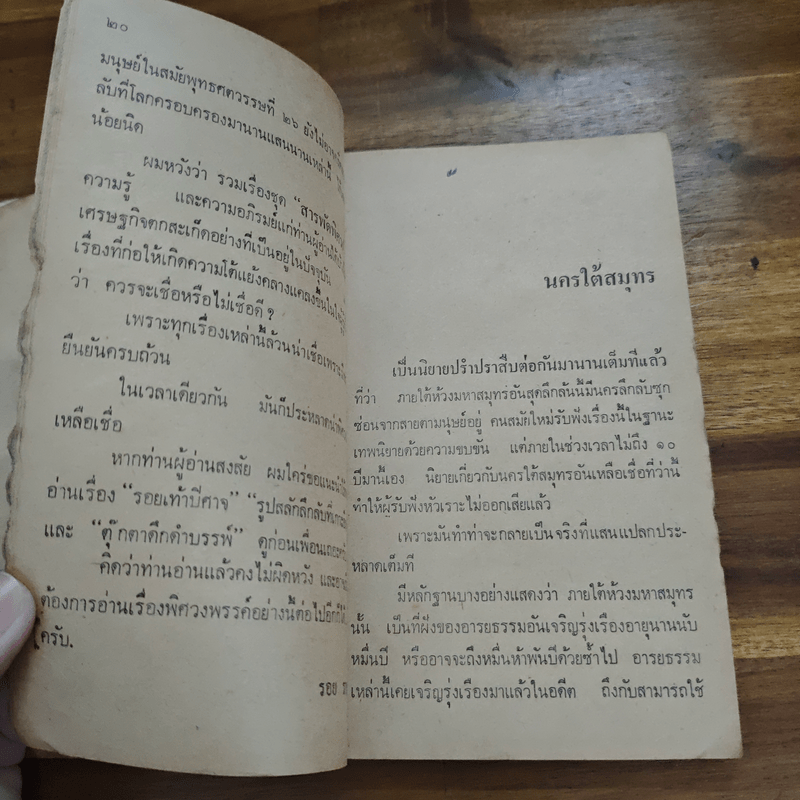 ๒๐
มนุษย์ในสมัยพุทธศตวรรษที่ ๒๖ ยังไม่อาจ
ลับที่โลกครอบครองมานานแสนนานเหล่านี้
น้อยนิด
ผมหวังว่า รวมเรื่องชุด “สารพัด
ความรู้ และความอภิรมย์แก่ท่านผู้อ่าน
เศรษฐกิจตกสะเก็ดอย่างที่เป็นอยู่ในปัจจุบัน
เรื่องที่ก่อให้เกิดความโต้แย้งคลางแคลงขึ้นใน
ว่า ควรจะเชื่อหรือไม่เชื่อดี ?
เพราะทุกเรื่องเหล่านี้ล้วนน่าเชื่อเพราะ
ยืนยันครบถ้วน
ในเวลาเดียวกัน มันก็ประหลาด
เหลือเชื่อ
หากท่านผู้อ่านสงสัย ผมใคร่ขอแนะนำ
อ่านเรื่อง “รอยเท้าปีศาจ” “รูปสลักลึกลับ
และ “ตุ๊กตาดึกดำบรรพ์” ดูก่อนเพื่อน
คิดว่าท่านอ่านแล้วคงไม่ผิดหวัง และ
ต้องการอ่านเรื่องพิศวงพรรค์อย่างนี้ต่อไปอีก
ครับ.
รอง
นครใต้สมุทร
เป็นนิยายปรำปราสืบต่อกันมานานเต็มทีแล้ว
ที่ว่า ภายใต้ห้วงมหาสมุทรอันสุดลึกล้นนั้นมีนครลึกลับซุก
ซ่อนจากสายตามนุษย์อยู่ คนสมัยใหม่รับฟังเรื่องนี้ในฐานะ
เทพนิยายด้วยความขบขัน แต่ภายในช่วงเวลาไม่ถึง ๑๐
ปีมานี้เอง นิยายเกี่ยวกับนครใต้สมุทรอันเหลือเชื่อที่ว่านี้
ทำให้ผู้รับฟังหัวเราะไม่ออกเสียแล้ว
เพราะมันทำท่าจะกลายเป็นจริงที่แสนแปลกประ-
หลาดเต็มที
มีหลักฐานบางอย่างแสดงว่า ภายใต้ห้วงมหาสมุทร
นั้น เป็นที่ฝังของอารยธรรมอันเจริญรุ่งเรืองอายุนานนับ
หมื่นปี หรืออาจจะถึงหมื่นห้าพันปีด้วยซ้ำไป อารยธรรม
เหล่านี้เคยเจริญรุ่งเรืองมาแล้วในอดีต ถึงกับสามารถใช้